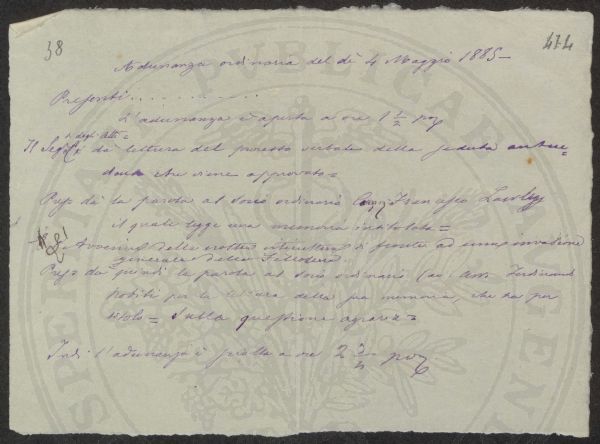 38
Adunanza ordinaria del dì 4 Maggio 1885 -
Presenti . . . . . . . . . .
L'adunanza è aperta a ore 1 1/2 po
degli Atti =
Il Seg dà lettura del processo verbale della seduta antece-
dente che viene approvato =
Pres dà la parola al socio ordinario Francesco
il quale legge una memoria intitolata =
Avvenire della nostra di fronte ad una invasione
generale della Fillossera.
Pres dà quindi la parola al Socio ordinario Cav. Avv. Ferdinand
per la lettura della sua memoria, che ha per
titolo = Sulla questione agraria =
Indi l'adunanza è sciolta a ore 2 3/4 po